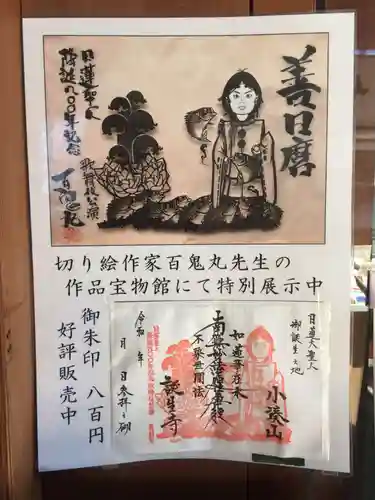 善日麿
日蓮聖人
降誕八〇〇年記念
歌舞伎公演
百鬼丸
切り絵作家百鬼丸先生の
作品宝物館にて特別展示中
御朱印 八百円
好評販売中
日蓮大聖人
御誕生之地
小湊山
如蓮華在水
不染世間法
誕生寺
令和 年 月 日参拝之砌